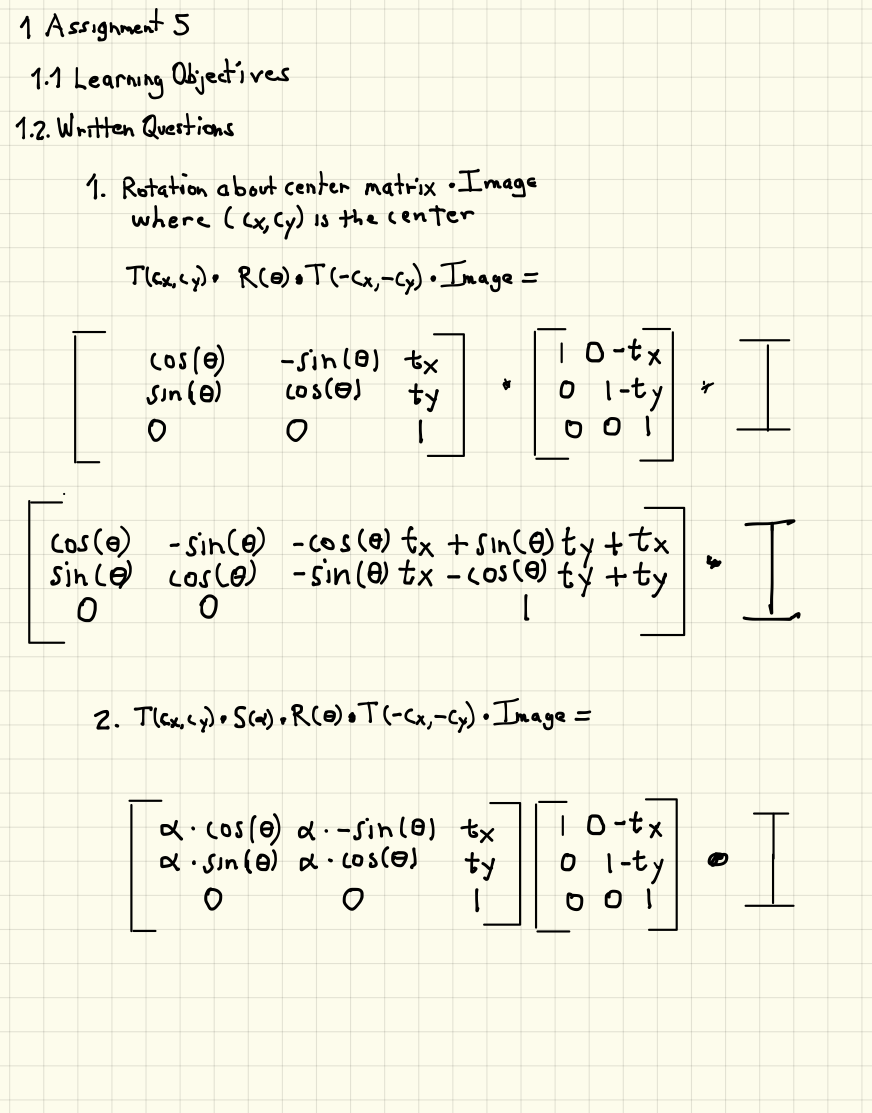 1 Assignment 5
1.1 Learning Objectives
1.2. Written Questions
1. Rotation about center matrix · Image
where (cx,cy) is the center
T(cx,cy) · R(θ) · T(-cx,-cy) · Image =
cos(θ) -sin(θ) tx
sin(θ) cos(θ) ty
0 0 1
·
1 0 -tx
0 1 -ty
0 0 1
· I
cos(θ) -sin(θ) -cos(θ) tx + sin(θ) ty + tx
sin(θ) cos(θ) -sin(θ) tx - cos(θ) ty + ty
0 0 1
· I
2. T(cx,cy) · S(α) · R(θ) · T(-cx,-cy) · Image =
α · cos(θ) α · -sin(θ) tx
α · sin(θ) α · cos(θ) ty
0 0 1
1 0 -tx
0 1 -ty
0 0 1
· I